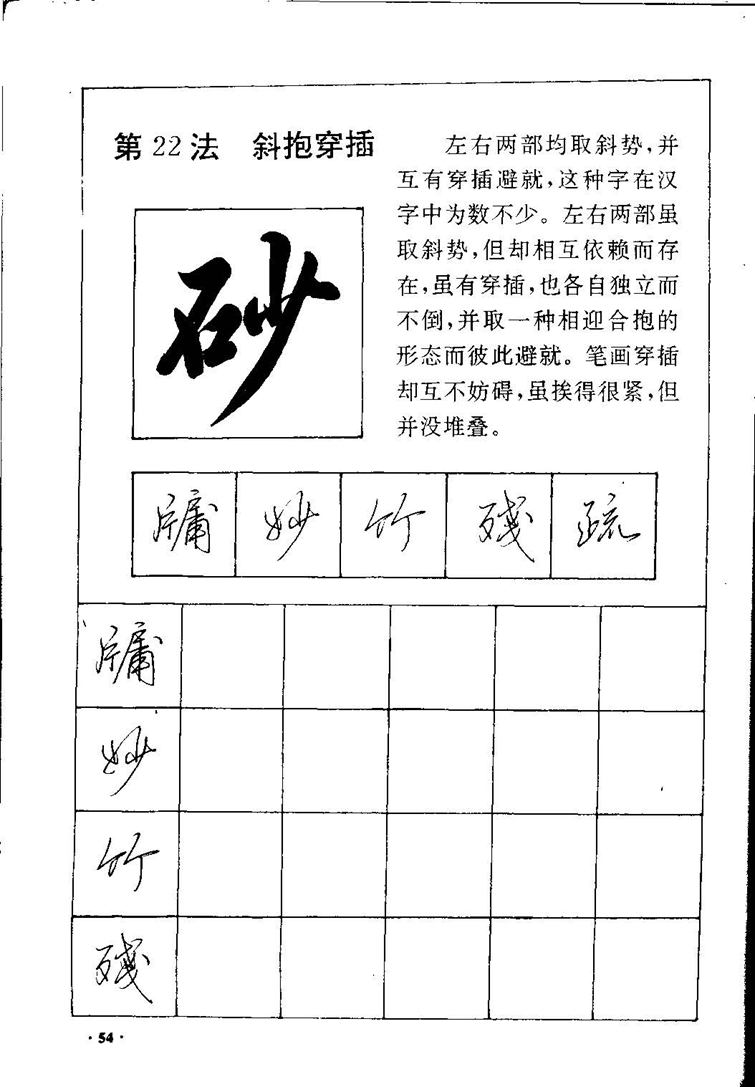 第22法 斜抱穿插
左右两部均取斜势，并
互有穿插避就，这种字在汉
字中为数不少。左右两部虽
取斜势，但却相互依赖而存
在，虽有穿插，也各自独立而
不倒，并取一种相迎合抱的
形态而彼此避就。笔画穿插
却互不妨碍，虽挨得很紧，但
并没堆叠。
砂
牗 妙 竹 残 疏
牗
妙
竹
残
·54·